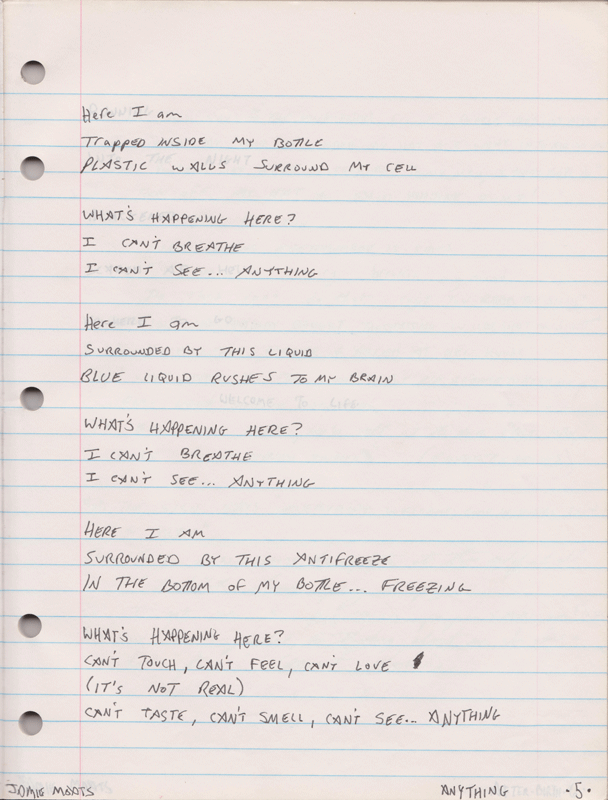 Here I am
TRAPPED INSIDE MY BOTTLE
PLASTIC WALLS SURROUND MY CELL
WHAT'S HAPPENING HERE?
I CAN'T BREATHE
I CAN'T SEE... ANYTHING
Here I am
SURROUNDED BY THIS LIQUID
BLUE LIQUID RUSHES TO MY BRAIN
WHAT'S HAPPENING HERE?
I CAN'T BREATHE
I CAN'T SEE... ANYTHING
HERE I AM
SURROUNDED BY THIS ANTIFREEZE
IN THE BOTTOM OF MY BOTTLE... FREEZING
WHAT'S HAPPENING HERE?
CAN'T TOUCH, CAN'T FEEL, CAN'T LOVE
(IT'S NOT REAL)
CAN'T TASTE, CAN'T SMELL, CAN'T SEE... ANYTHING
JAMIE MOATS ANYTHING •5•